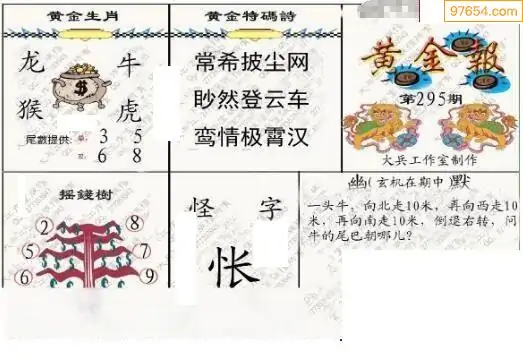 97654.com
黄金生肖
龙 牛
猴 虎
$
尾數提供: 單: 3 5
双: 6 8
黄金特碼詩
常希披尘网
眇然登云车
鸾情极霄汉
黄金報
第295期
大兵工作室制作
摇錢樹
2 8
6 7
5 9
怪 字
怅
幽(玄机在期中 默
一头牛,向北走10米,再向西走10
米,再向南走10米,倒退右转,问
牛的尾巴朝哪儿?